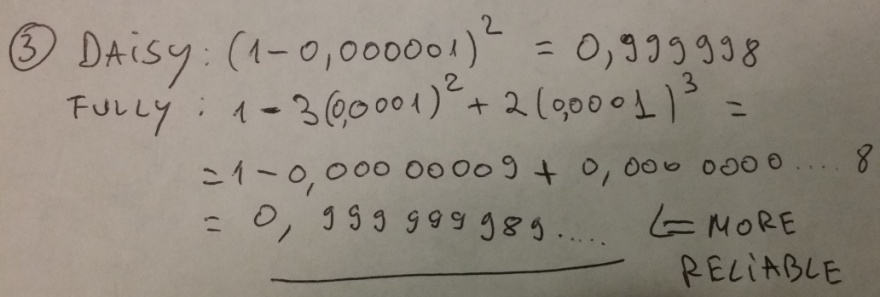 ③ DAiSy: (1-0,000001)² = 0,999998
FULLY: 1-3(0,0001)²+2(0,0001)³ =
=1-0,00000009+0,0000000....8
= 0,999999989..... <= MORE
RELiABLE